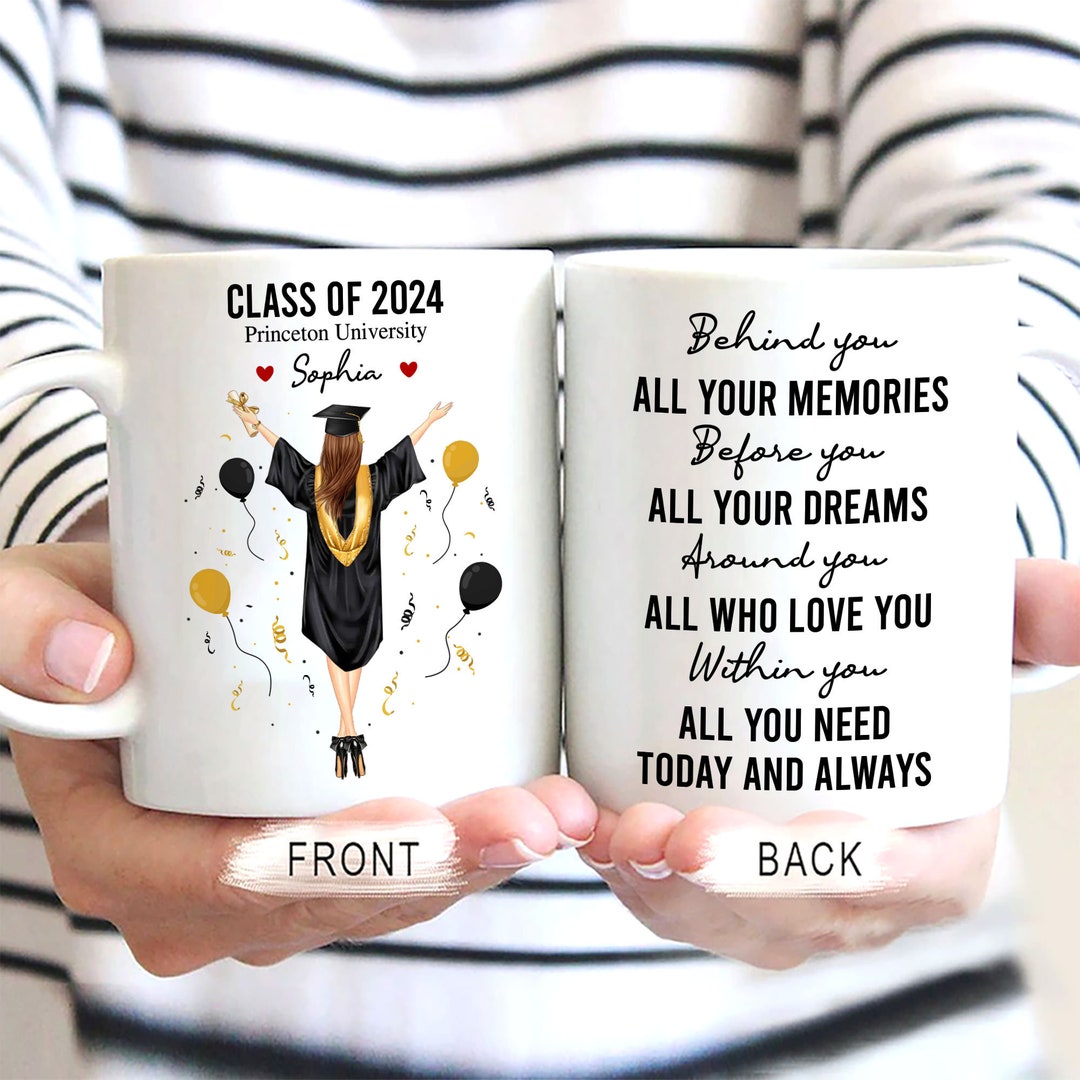 CLASS OF 2024
Princeton University
Sophia
Behind you
ALL YOUR MEMORIES
Before you
ALL YOUR DREAMS
Around you
ALL WHO LOVE YOU
Within you
ALL YOU NEED
TODAY AND ALWAYS
FRONT
BACK